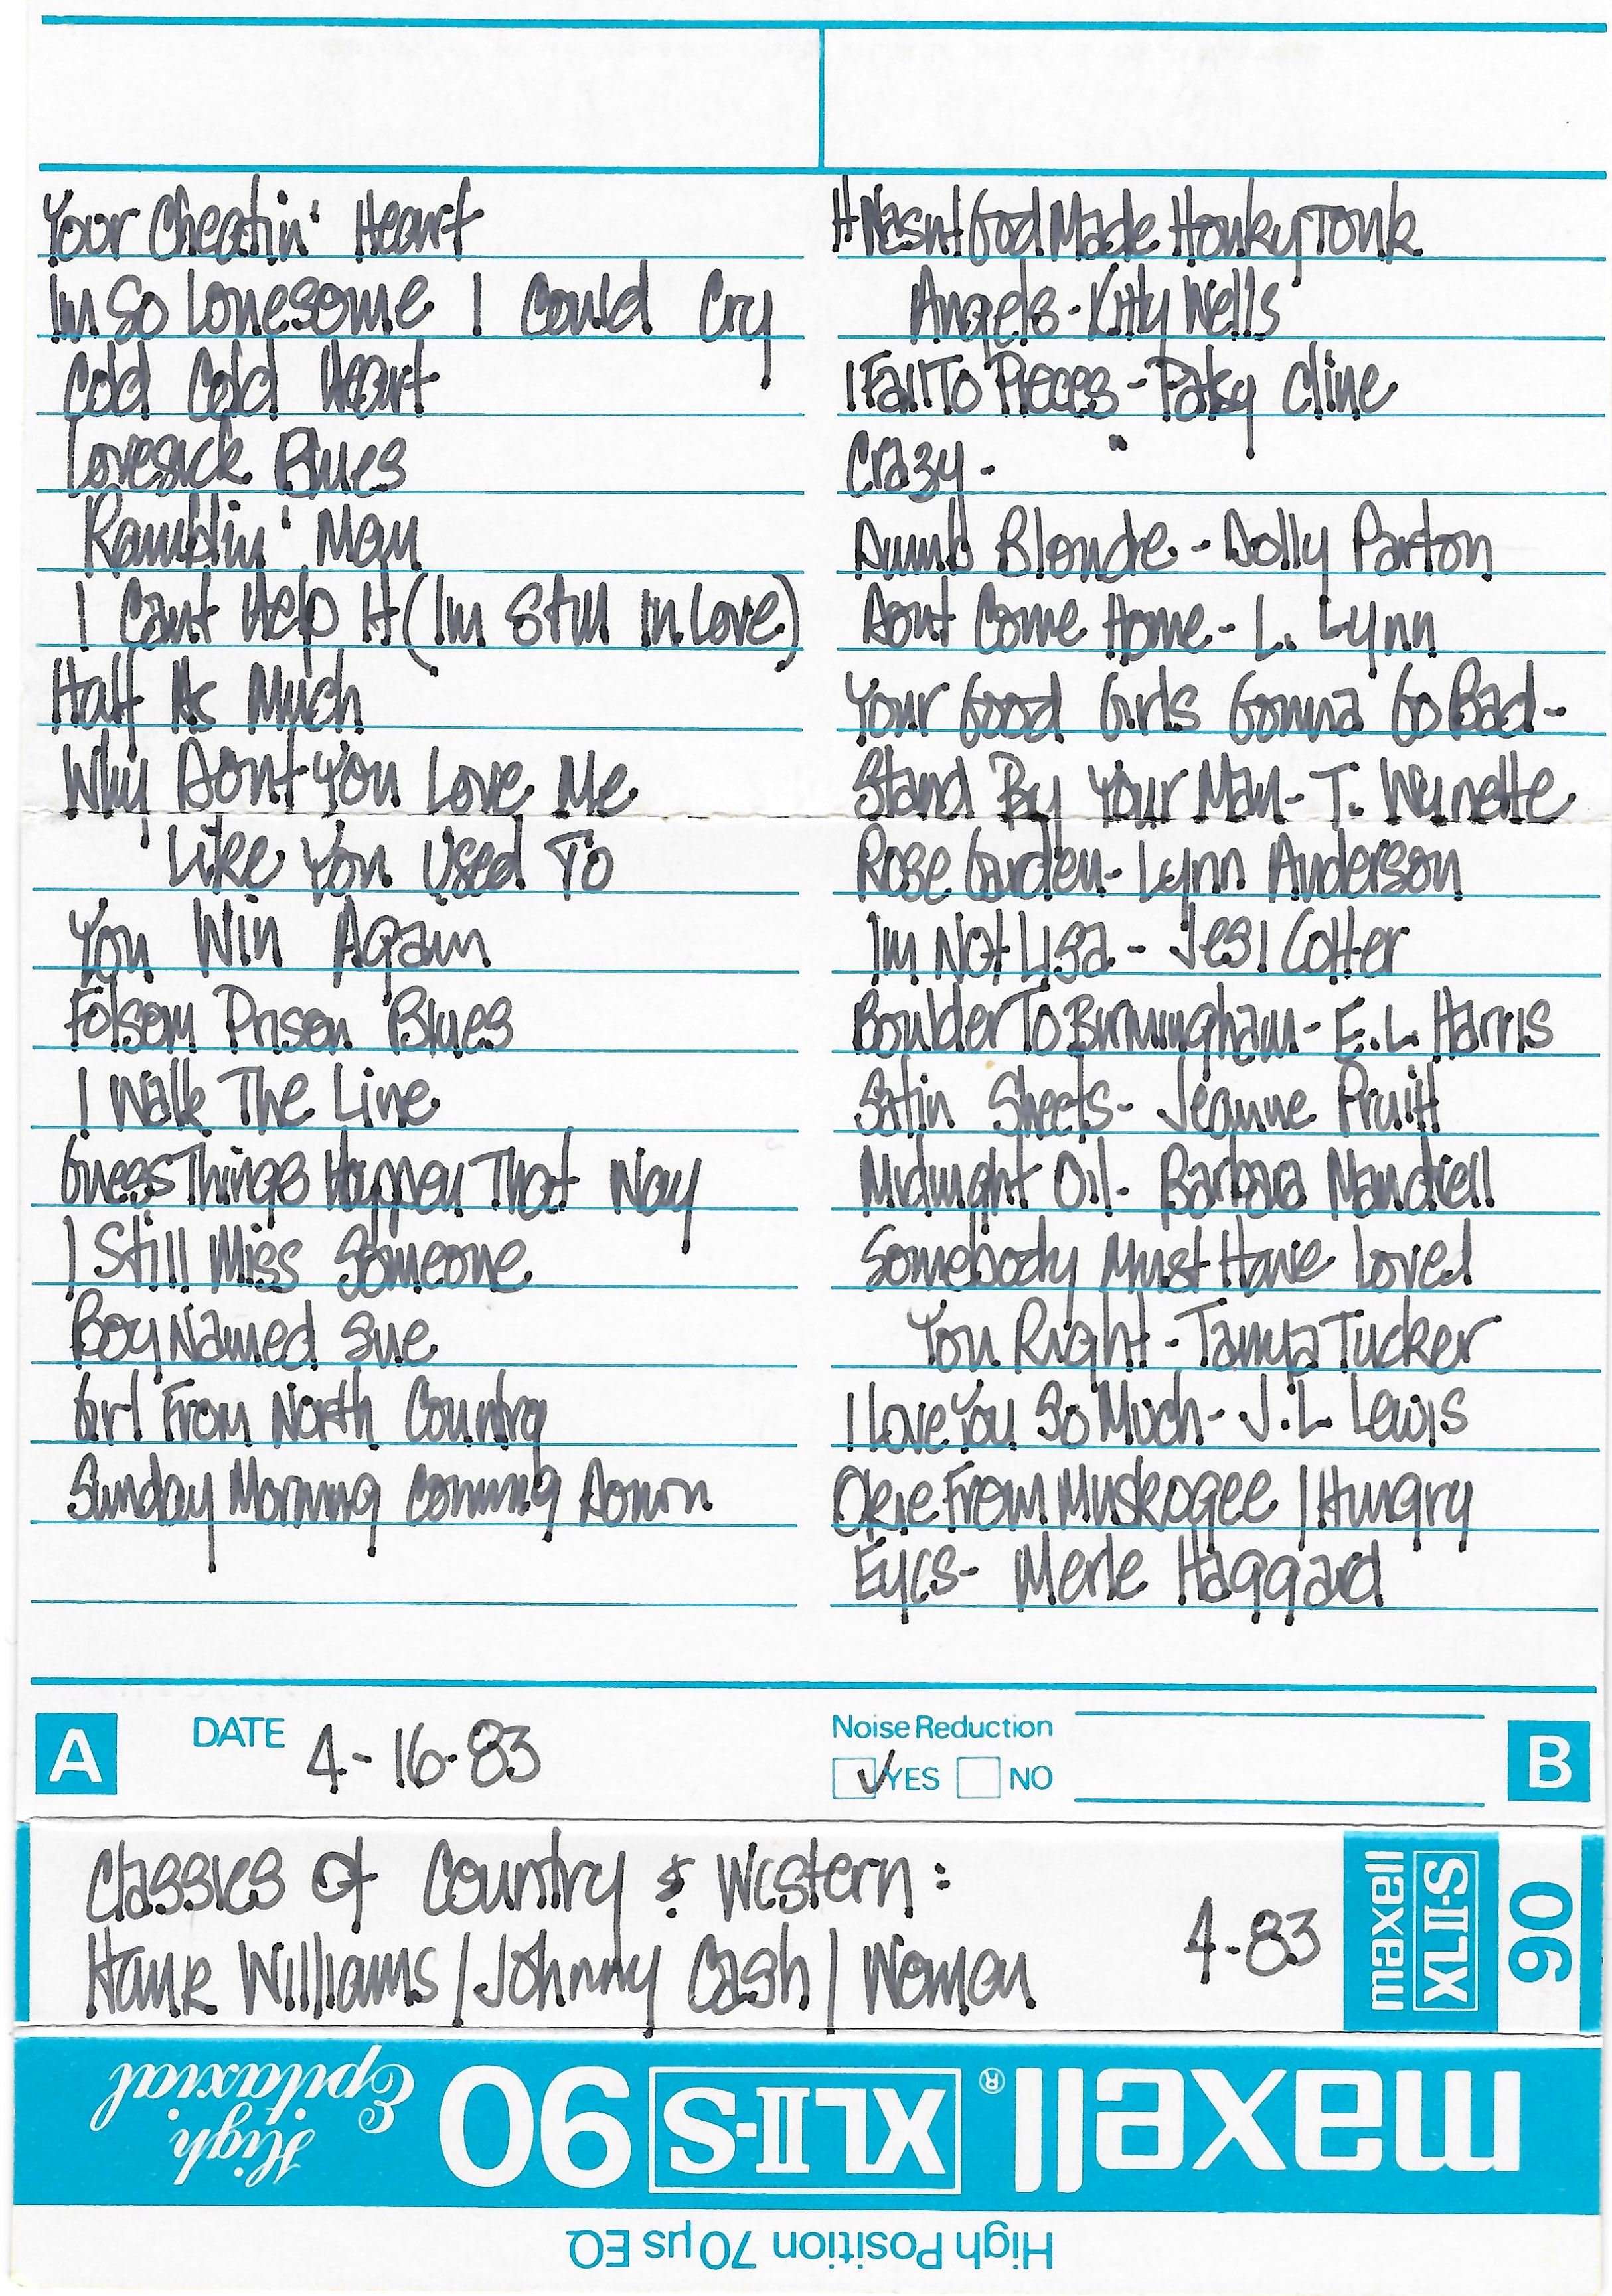 Your Cheatin' Heart
Im So Lonesome I Could Cry
Cold Cold Heart
Lovesick Blues
Ramblin' Man
I Cant Help It (Im Still In Love)
Half As Much
Why Dont You Love Me
Like You Used To
You Win Again
Folsom Prison Blues
I Walk The Line
Guess Things Happen That Way
I Still Miss Someone
Boy Named Sue
Girl From North Country
Sunday Morning Coming Down
It Wasnt God Made Honky Tonk
Angels - Kitty Wells
I Fall To Pieces - Patsy Cline
Crazy - "
Dumb Blonde - Dolly Parton
Dont Come Home - L. Lynn
Your Good Girls Gonna Go Bad -
Stand By Your Man - T. Wynette
Rose Garden - Lynn Anderson
Im Not Lisa - Jesi Colter
Boulder To Birmingham - E.L. Harris
Satin Sheets - Jeanne Pruitt
Midnight Oil - Barbara Mandrell
Somebody Must Have Loved
You Right - Tanya Tucker
I Love You So Much - J.L. Lewis
Okie From Muskogee / Hungry
Eyes - Merle Haggard
A DATE 4-16-83
Noise Reduction
✓YES NO
B
Classics Of Country & Western:
Hank Williams / Johnny Cash / Women
4-83
maxell
XLII-S
90
maxell® XLII-S 90 High Epitaxial
High Position 70µs EQ